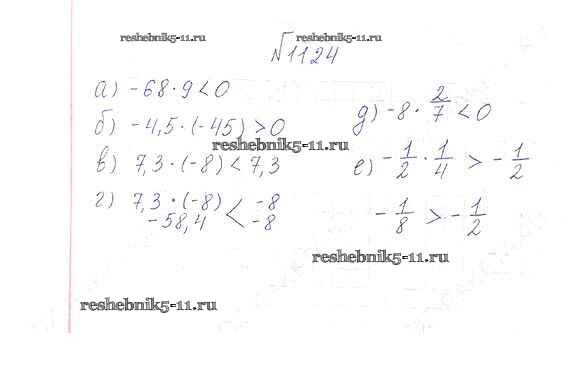 reshebnik5-11.ru
reshebnik5-11.ru
№1124
а) -68·9<0
б) -4,5·(-45)>0
reshebnik5-11.ru
в) 7,3·(-8)<7,3
г) 7,3·(-8) < -8
-58,4 -8
д) -8· 2/7 <0
е) -1/2 · 1/4 > -1/2
-1/8 > -1/2
reshebnik5-11.ru
reshebnik5-11.ru